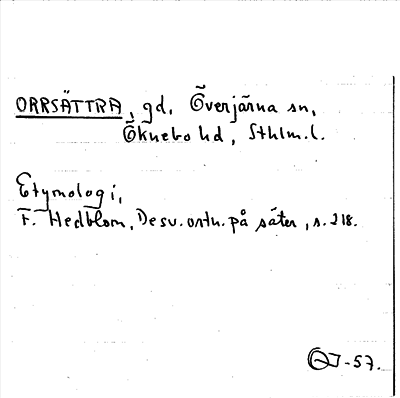 ORRSÄTTRA, gd, Överjärna sn,
Öknebo hd, Sthlm.l.
Etymologi,
F. Hedblom, De sv. ortn. på säter, s. 218.
-57.